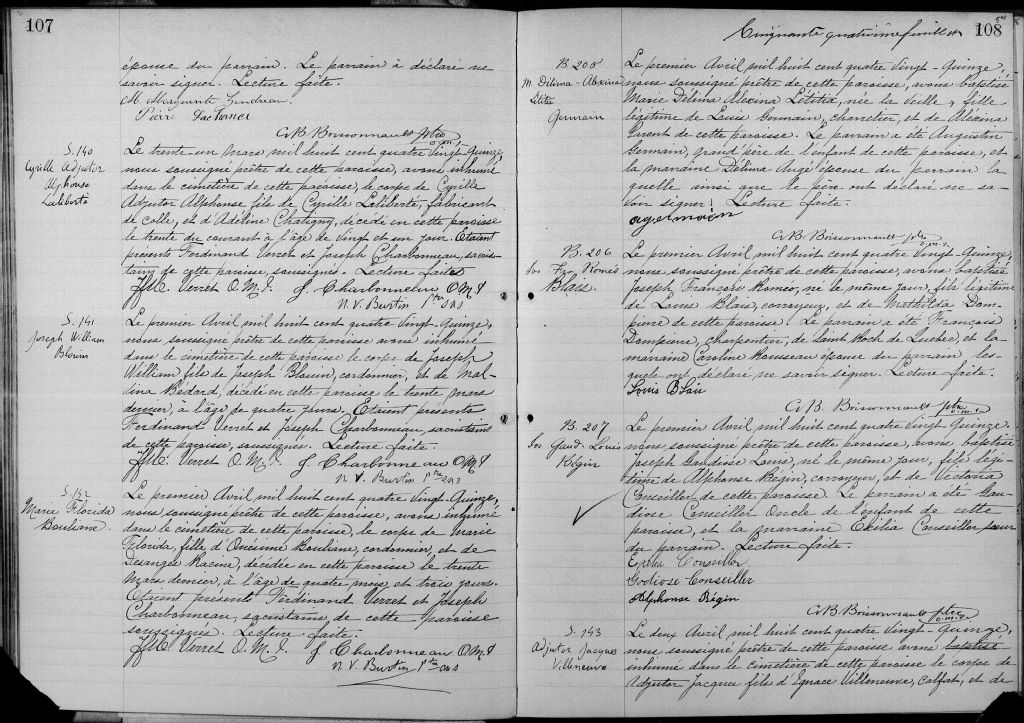 107
épouse du parrain. Le parrain à déclaré ne
savoir signer. Lecture faite.
M Marguerite
Pierre
G.B. Boissonnault ptre
o.m.i.
S. 140
Cyrille Adjutor
Alphonse
Laliberté
Le trente-un Mars mil huit cent quatre Vingt-Quinze,
nous soussigné prêtre de cette paroisse, avons inhumé
dans le cimetière de cette paroisse, le corps de Cyrille
Adjutor Alphonse fils de Cyrille Laliberté, fabricant
de colle, et d'Adéline Chatigny, décédé en cette paroisse
le trente du courant à l'âge de Vingt et un jour. Etaient
présents Ferdinand Verret et Joseph Charbonneau, sacris-
tains de cette paroisse, soussignés. Lecture faite.
Verret O.M.I. J. Charbonneau O.M.I
N.V. Burtin Ptre O.M.I
S. 141
Joseph William
Blouin
Le premier Avril mil huit cent quatre Vingt-Quinze,
nous soussigné prêtre de cette paroisse avons inhumé
dans le cimetière de cette paroisse le corps de Joseph
William fils de Joseph Blouin, cordonnier, et de Mal-
vina Bédard, décédé en cette paroisse le trente mars
dernier, à l'âge de quatre jours. Etaient présents
Ferdinand Verret et Joseph Charbonneau sacristains
de cette paroisse, soussignés. Lecture faite.
Verret O.M.I. J Charbonneau O.M.I
N.V. Burtin Ptre O.M.I
S. 142
Marie Florida
Bouliane
Le premier Avril mil huit cent quatre Vingt-Quinze,
nous soussigné prêtre de cette paroisse, avons inhumé
dans le cimetière de cette paroisse, le corps de Marie
Florida, fille d'Onésime Bouliane, cordonnier, et de
Desanges Racine, décédée en cette paroisse le trente
Mars dernier, à l'âge de quatre mois et trois jours.
Etaient présents Ferdinand Verret et Joseph
Charbonneau, sacristains de cette paroisse
soussignés. Lecture faite.
Verret O.M.I. J Charbonneau O.M.I
N.V. Burtin Ptre O.M.I
Cinquante quatrième feuillet 108
B 205
M. Délima Alexina
Létitia
Germain
Le premier Avril mil huit cent quatre Vingt-Quinze,
nous soussigné prêtre de cette paroisse, avons baptisé
Marie Délima Alexina Létitia, née la veille, fille
légitime de Louis Germain, charretier, et de Alexina
de cette paroisse. Le parrain a été Augustin
Germain, grand père de l'enfant de cette paroisse, et
la marraine Délima Augé épouse du parrain la
quelle ainsi que le père ont déclaré ne sa-
voir signer. Lecture faite.
G.B. Boissonnault ptre
o.m.i.
B. 206
Jos Frs Roméo
Blais.
Le premier Avril, mil huit cent quatre Vingt-Quinze,
nous soussigné prêtre de cette paroisse, avons baptisé
Joseph François Roméo, né le même jour, fils légitime
de Louis Blais, corroyeur, et de Mathilda Dom-
pierre de cette paroisse. Le parrain a été François
Dompierre, charpentier, de Saint Roch de Québec, et la
marraine Caroline Rousseau épouse du parrain, les-
quels ont déclaré ne savoir signer. Lecture faite.
Louis Blais
G.B. Boissonnault ptre
o.m.i.
B. 207
Jos Gaud. Louis
Bégin
Le premier Avril, mil huit cent quatre Vingt-Quinze.
nous soussigné prêtre de cette paroisse, avons baptisé
Joseph Gaudiose Louis, né le même jour, fils légi-
time de Alphonse Bégin, corroyeur, et de Victoria
Conseiller de cette paroisse. Le parrain a été Gau-
diose Conseiller Oncle de l'enfant de cette
paroisse, et la marraine Exélia Conseiller soeur
du parrain. Lecture faite.
Exélia Conseiller
Godiose Conseiller
Alphonse Bégin
G.B. Boissonnault ptre
o.m.i.
S. 143
Adjutor Jacques
Villeneuve
Le deux Avril, mil huit cent quatre Vingt-Quinze,
nous soussigné prêtre de cette paroisse avons baptisé
inhumé dans le cimetière de cette paroisse le corps de
Adjutor Jacques fils d'Ignace Villeneuve, calfat, et de